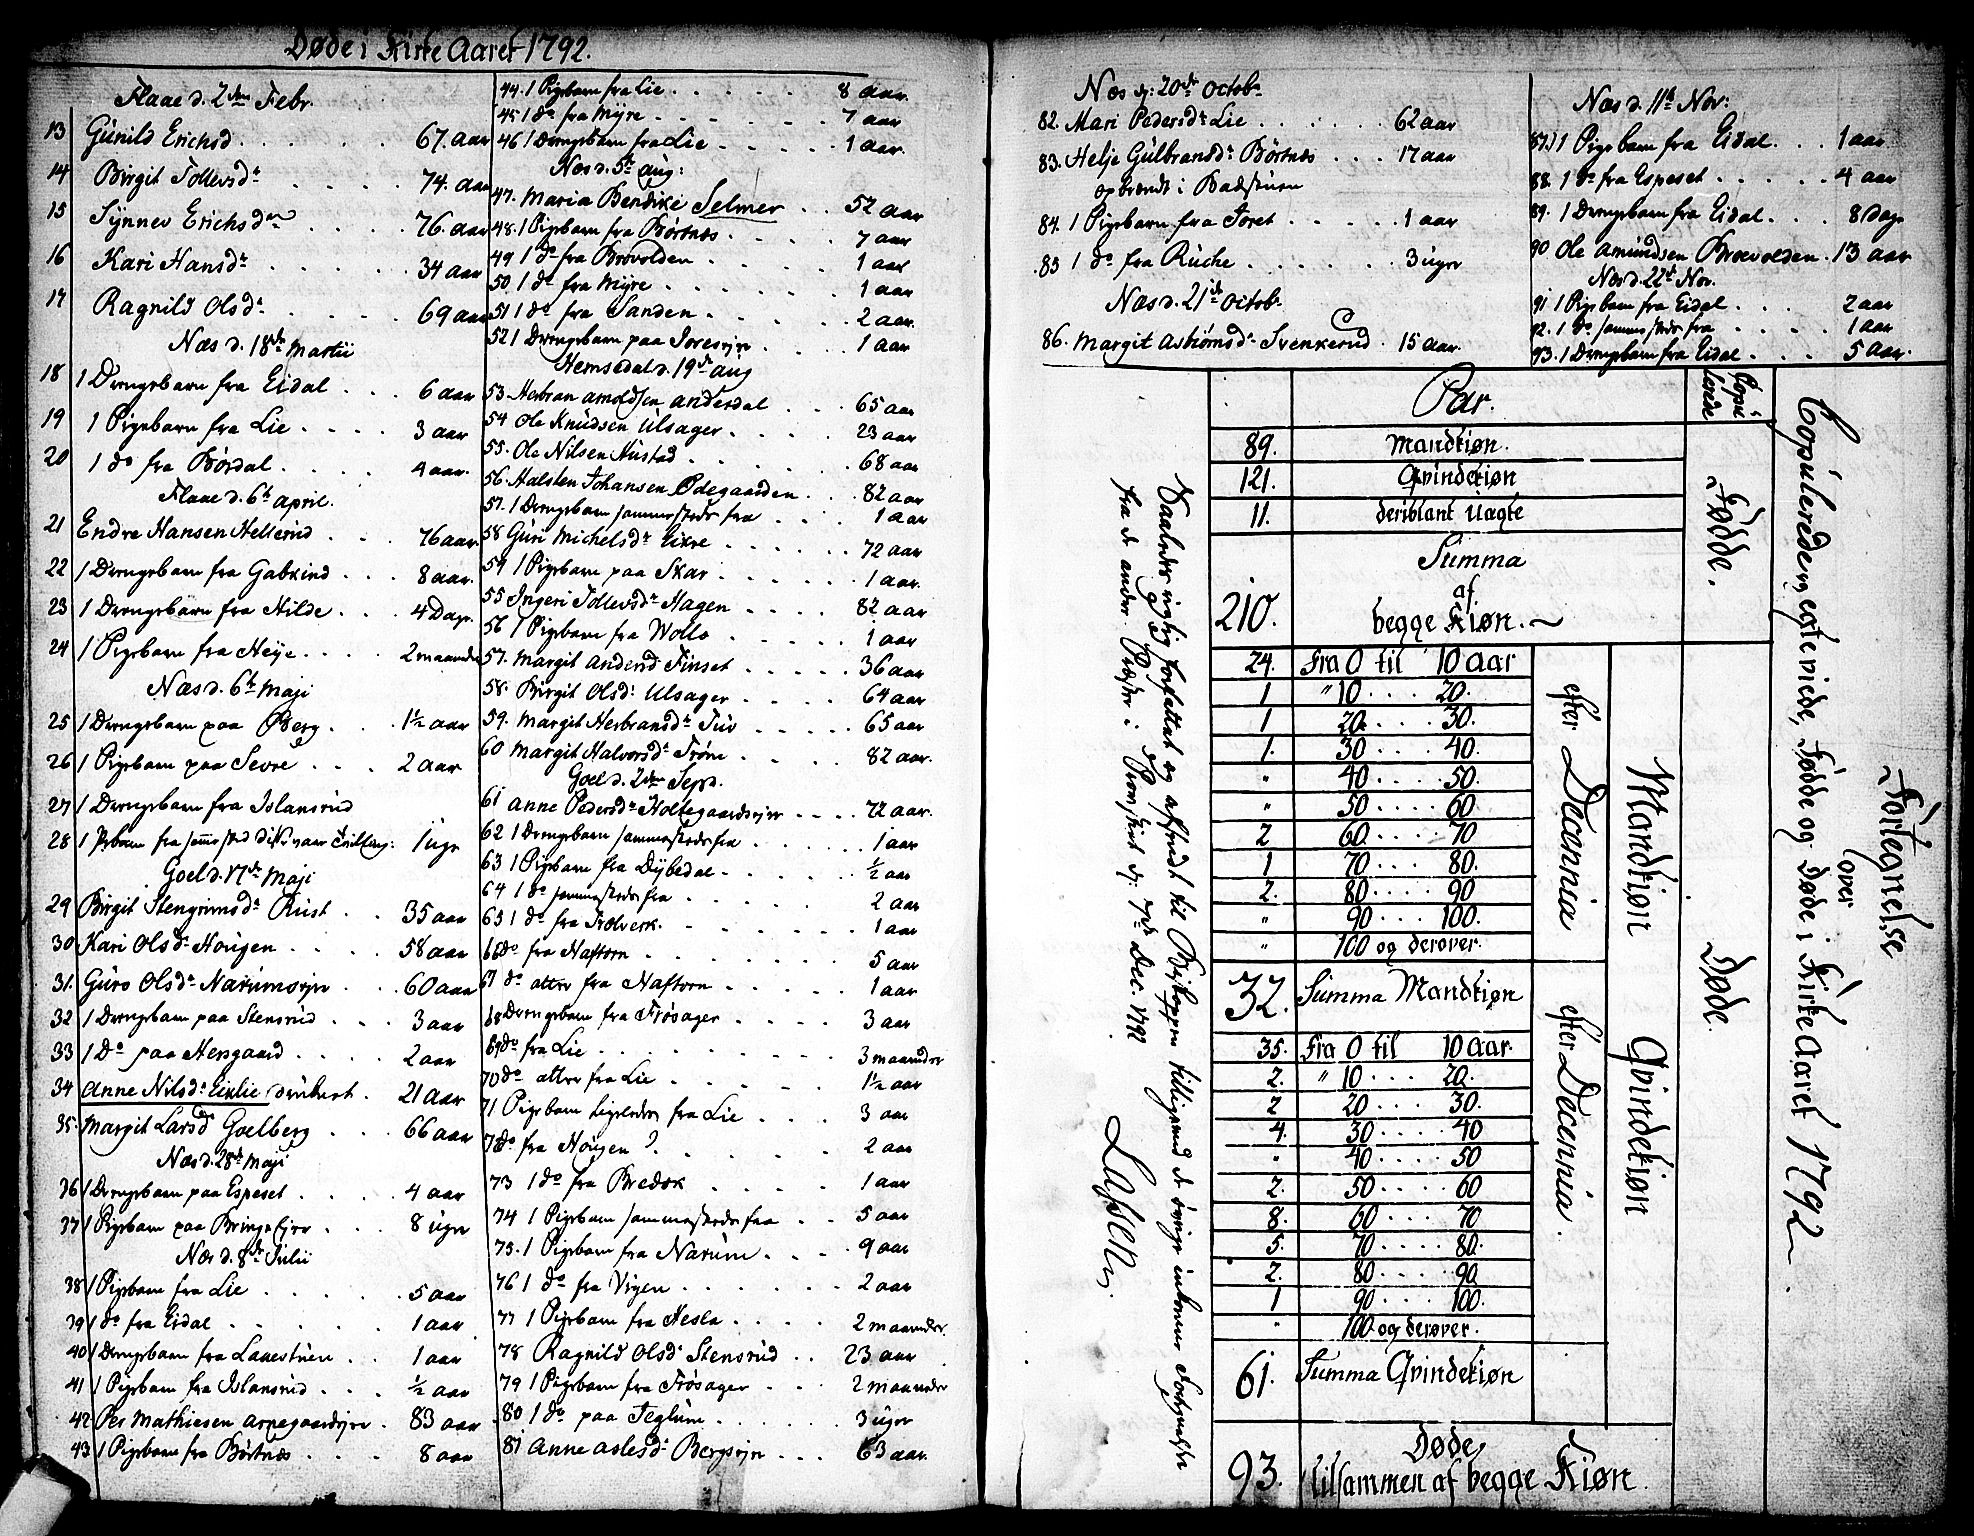 Døde i Kirke Aaret 1792.
Flaae d. 2den Febr.
13 Gunild Erichsd. 67. aar
14 Birgit Tollevsdr 74. aar
15 Synnev Erichsdr 76. aar
16 Kari Hansdr 34 aar
17 Ragnild Olsdr 69 aar
Næs d. 18de Martii
18 1 Drengebarn fra Eidal 6 aar
19 1 Pigebarn fra Lie 3 aar
20 1 do fra Børdal 4 aar.
Flaae d. 6te april.
21 Endre Hansen Hellerud 76 aar
22 1 Drengebarn fra Gabkind 8 aar.
23 1 Drengebarn fra Hilde 4 Dage
24 1 Pigebarn fra Heije 2 maaneder
Næs d. 6te Maji
25 1 Drengebarn paa Berg 1½ aar
26 1 Pigebarn paa Sevre 2 aar
27 1 Drengebarn fra Islansrud
28 1 Pbarn fra samested disse vaar Tvilling: 1 uge
Goel d. 17de Maji
29 Birgit Stengrimsdr Rust 35 aar
30 Kari Olsdr Hougen 58 aar
31. Guro Olsdr Narumseje 60 aar
32 1 Drengebarn paa Stensrud 3 aar
33 1 Do paa Hersgaard 2 aar
34 Anne Nilsdr Eiklie druknet 21 aar
35. Margit Larsd Goelberg 66 aar
Næs d. 28de Maji
36 1 Drengebarn paa Espeset 4 aar
37 1 Pigebarn paa Bringe Ejee 8 uger
Næs d. 8de Julii
38 1 Pigebarn fra Lie 5 aar
39 1 do fra Eidal 1 aar
40 1 Drengebarn fra Lauestuen 1 aar
41 1 Pigebarn fra Islansrud ½ aar
42 Per Mathiesen Arnegaardseje 83 aar
43 1 Pigebarn fra Børtnæs 8 aar
44. 1 Pigebarn fra Lie 8 aar.
45 1 do fra Myre 7 aar
46 1 Drengebarn fra Lie 1 aar.
Næs d. 5te aug:
47. Maria Bendike Selmer 52 aar
48. 1 Pigebarn fra Børtnæs 7 aar
49 1 do fra Brovolden 1 aar
50 1 do fra Myre 1 aar
51 1 do fra Sanden 2 aar.
52 1 Drengebarn paa Toreseje 1 aar
Hemsedal d. 19de aug
53. Herbran Arnoldsen Anderdal 65 aar
54 Ole Knudsen Ulsager 23 aar
55. Ole Nilsen Hustad 68 aar
56. Halsten Johansen Ødegaarden 82 aar
57. 1 Drengebarn sammesteds fra 1 aar
58 Guri Michelsdr Eikre 72 aar
59 1 Pigebarn paa Skar 1 aar.
55 Ingeri Tollevsdr Hagen 82 aar
56 1 Pigebarn fra Wollo 1 aar
57. Margit Andersd Finset 36 aar
58. Birgit Olsdr Ulsager 64 aar
59. Margit Herbransdr Tuv 65 aar
60 Margit Halvorsdr Trøm 82 aar.
Goel d. 2den Sept.
61 Anne Pedersdr Holtegaardseje 72 aar.
62 1 Drengebarn sammesteds fra 1 aar
63 1 Pigebarn fra Dybedal ½ aar
64 1 do sammesteds fra 2 aar
65 1 do fra Trolverk 1 aar
66 do fra Haftorn 5 aar
67 do atter fra Haftorn 1 aar
68 Drengebarn fra Frøsager 3 aar
69 do fra Lie 3 maaneder
70 do atter fra Lie 1½ aar
71 Pigebarn ligeledes fra Lie 3 aar
72 do fra Hougen 2 aar
73 1 do fra Bredok 1 aar
74 1 Pigebarn sammesteds fra 5 aar
75. 1 Pigebarn fra Narum 9 aar
76 1 do fra Vigen 2 aar
77 1 Pigebarn fra Hesla 2 maaneder
78 Ragnild Olsdr Stensrud 23 aar
79 1 Pigebarn fra Frøsager 2 maaneder
80 1 do paa Teglum 3 uger
81 Anne Aslesdr Bergseje 63 aar.
Næs d: 20de Octobr
82. Mari Pedersdr Lie 62 aar
83. Helje Gulbransdr Børtnæs 17 aar
opbrændt i Badstuen
84. 1 Pigebarn fra Toret 1 aar
85 1 do fra Ruche 3 uger
Næs d. 21de Octobr
86. Margit Asbiørnsdr Svenkerud 15 aar
Næs d. 11te Nov:
87. 1 Pigebarn fra Eidal 1 aar
88. 1 do fra Espeset 4 aar
89. 1 Drengebarn fra Eidal 8 Dage
90 Ole Amundsen Broevolden 13 aar
Næs d. 22de Nov.
91 1 Pigebarn fra Eidal 2 aar
92. 1 do sammesteds fra 1 aar
93. 1 Drengebarn fra Eidal 5 aar.
Fortegnelse
over
Copulerede og egteviede, Fødde og Døde i Kirke Aaret 1792
Copulerede
Par.
Fødde.
89. Mandkiøn.
121. Qvindekiøn
11. deriblant uægte
Summa
af
210. begge Kiøn.
Døde.
Mandkiøn
efter Decennia
24. Fra 0 til 10 Aar
1 " 10 20.
1 20 30.
1. 30 40.
" 40 50.
" 50 60
2 60 70
1 70 80.
2. 80 90
" 90 100.
" 100 og derover.
32. Summa Mandkiøn
Qvindekiøn
efter Decennia.
35. Fra 0 til 10 Aar.
2. " 10 20.
2 20 30.
4. 30 40
" 40 50
2. 50 60
8. 60 70
5. 70 80.
2. 80 90
1 90 100.
" 100 og derover.
61. Summa Qvindekiøn
Døde
93. tilsammen af begge Kiøn.
Saaledes rigtig forfattet og affendt til Biskoppen tilligemed de øvrige indkomne Fortegnelser
fra de andre Præster i Provstiet d: 7de Dec. 1792
Lassen